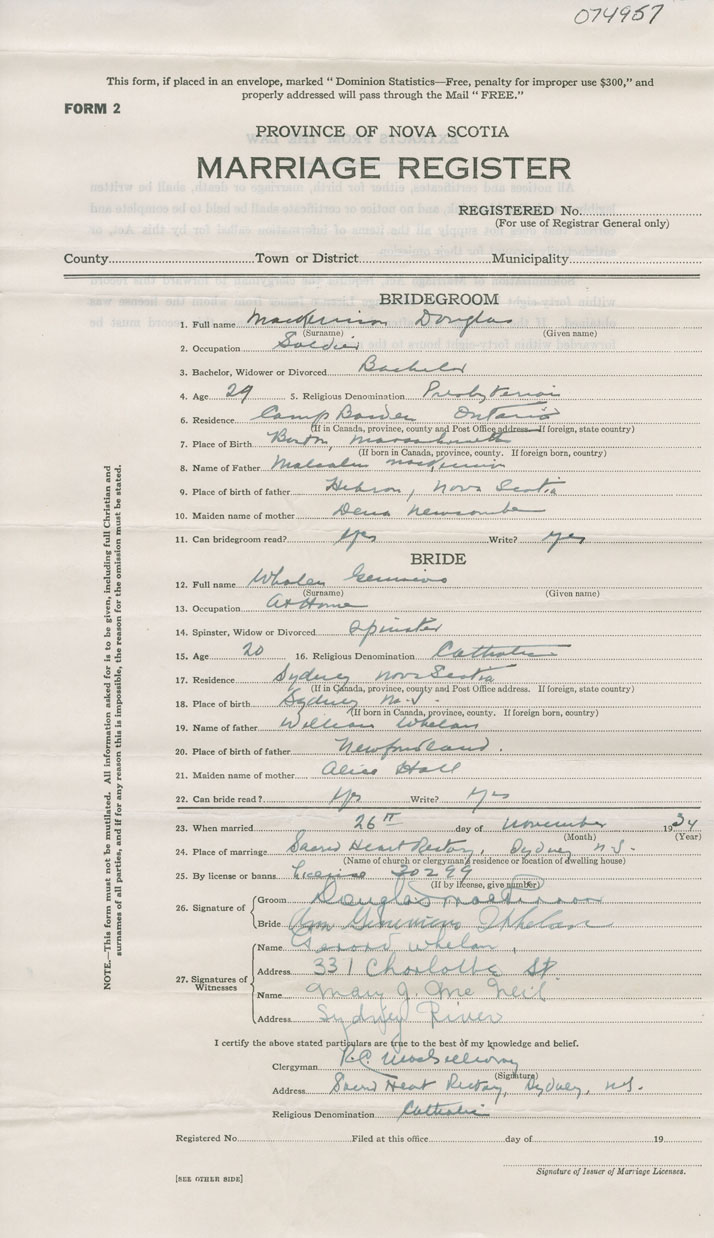 074957
This form, if placed in an envelope, marked "Dominion Statistics—Free, penalty for improper use $300," and
properly addressed will pass through the Mail "FREE."
FORM 2
PROVINCE OF NOVA SCOTIA
MARRIAGE REGISTER
REGISTERED No.
(For use of Registrar General only)
County Town or District Municipality
BRIDEGROOM
1. Full name MacKinnon Douglas
(Surname) (Given name)
2. Occupation Soldier
3. Bachelor, Widower or Divorced Bachelor
4. Age 29 5. Religious Denomination Presbyterian
6. Residence Camp Borden Ontario
(If in Canada, province, county and Post Office address. If foreign, state country)
7. Place of Birth Boston, Massachusetts
(If born in Canada, province, county. If foreign born, country)
8. Name of Father Malcolm MacKinnon
9. Place of birth of father Hebron, Nova Scotia
10. Maiden name of mother Newcombe
11. Can bridegroom read? Yes Write? Yes
BRIDE
12. Full name Whalen
(Surname) (Given name)
13. Occupation At Home
14. Spinster, Widow or Divorced Spinster
15. Age 20 16. Religious Denomination Catholic
17. Residence Sydney Nova Scotia
(If in Canada, province, county and Post Office address. If foreign, state country)
18. Place of birth Sydney N.S.
(If born in Canada, province, county. If foreign born, country)
19. Name of father William Whelan
20. Place of birth of father Newfoundland.
21. Maiden name of mother Alice Hall
22. Can bride read? Yes Write? Yes
23. When married 26th day of November 1934
(Month) (Year)
24. Place of marriage Sacred Heart Rectory, Sydney N.S.
(Name of church or clergyman's residence or location of dwelling house)
25. By license or banns License 30299
(If by license, give number)
26. Signature of Groom Douglas MacKinnon
Bride Ann Genevieve Whelan
27. Signatures of Witnesses Name Gerard Whelan
Address 331 Charlotte St.
Name Mary J. Mc Neil
Address Sydney River
I certify the above stated particulars are true to the best of my knowledge and belief.
Clergyman R.C. MacGillivray
(Signature)
Address Sacred Heart Rectory, Sydney, N.S.
Religious Denomination Catholic
Registered No. Filed at this office day of 19
Signature of Issuer of Marriage Licenses.
[SEE OTHER SIDE]
NOTE.—This form must not be mutilated. All information asked for is to be given, including full Christian and
surnames of all parties, and if for any reason this is impossible, the reason for the omission must be stated.